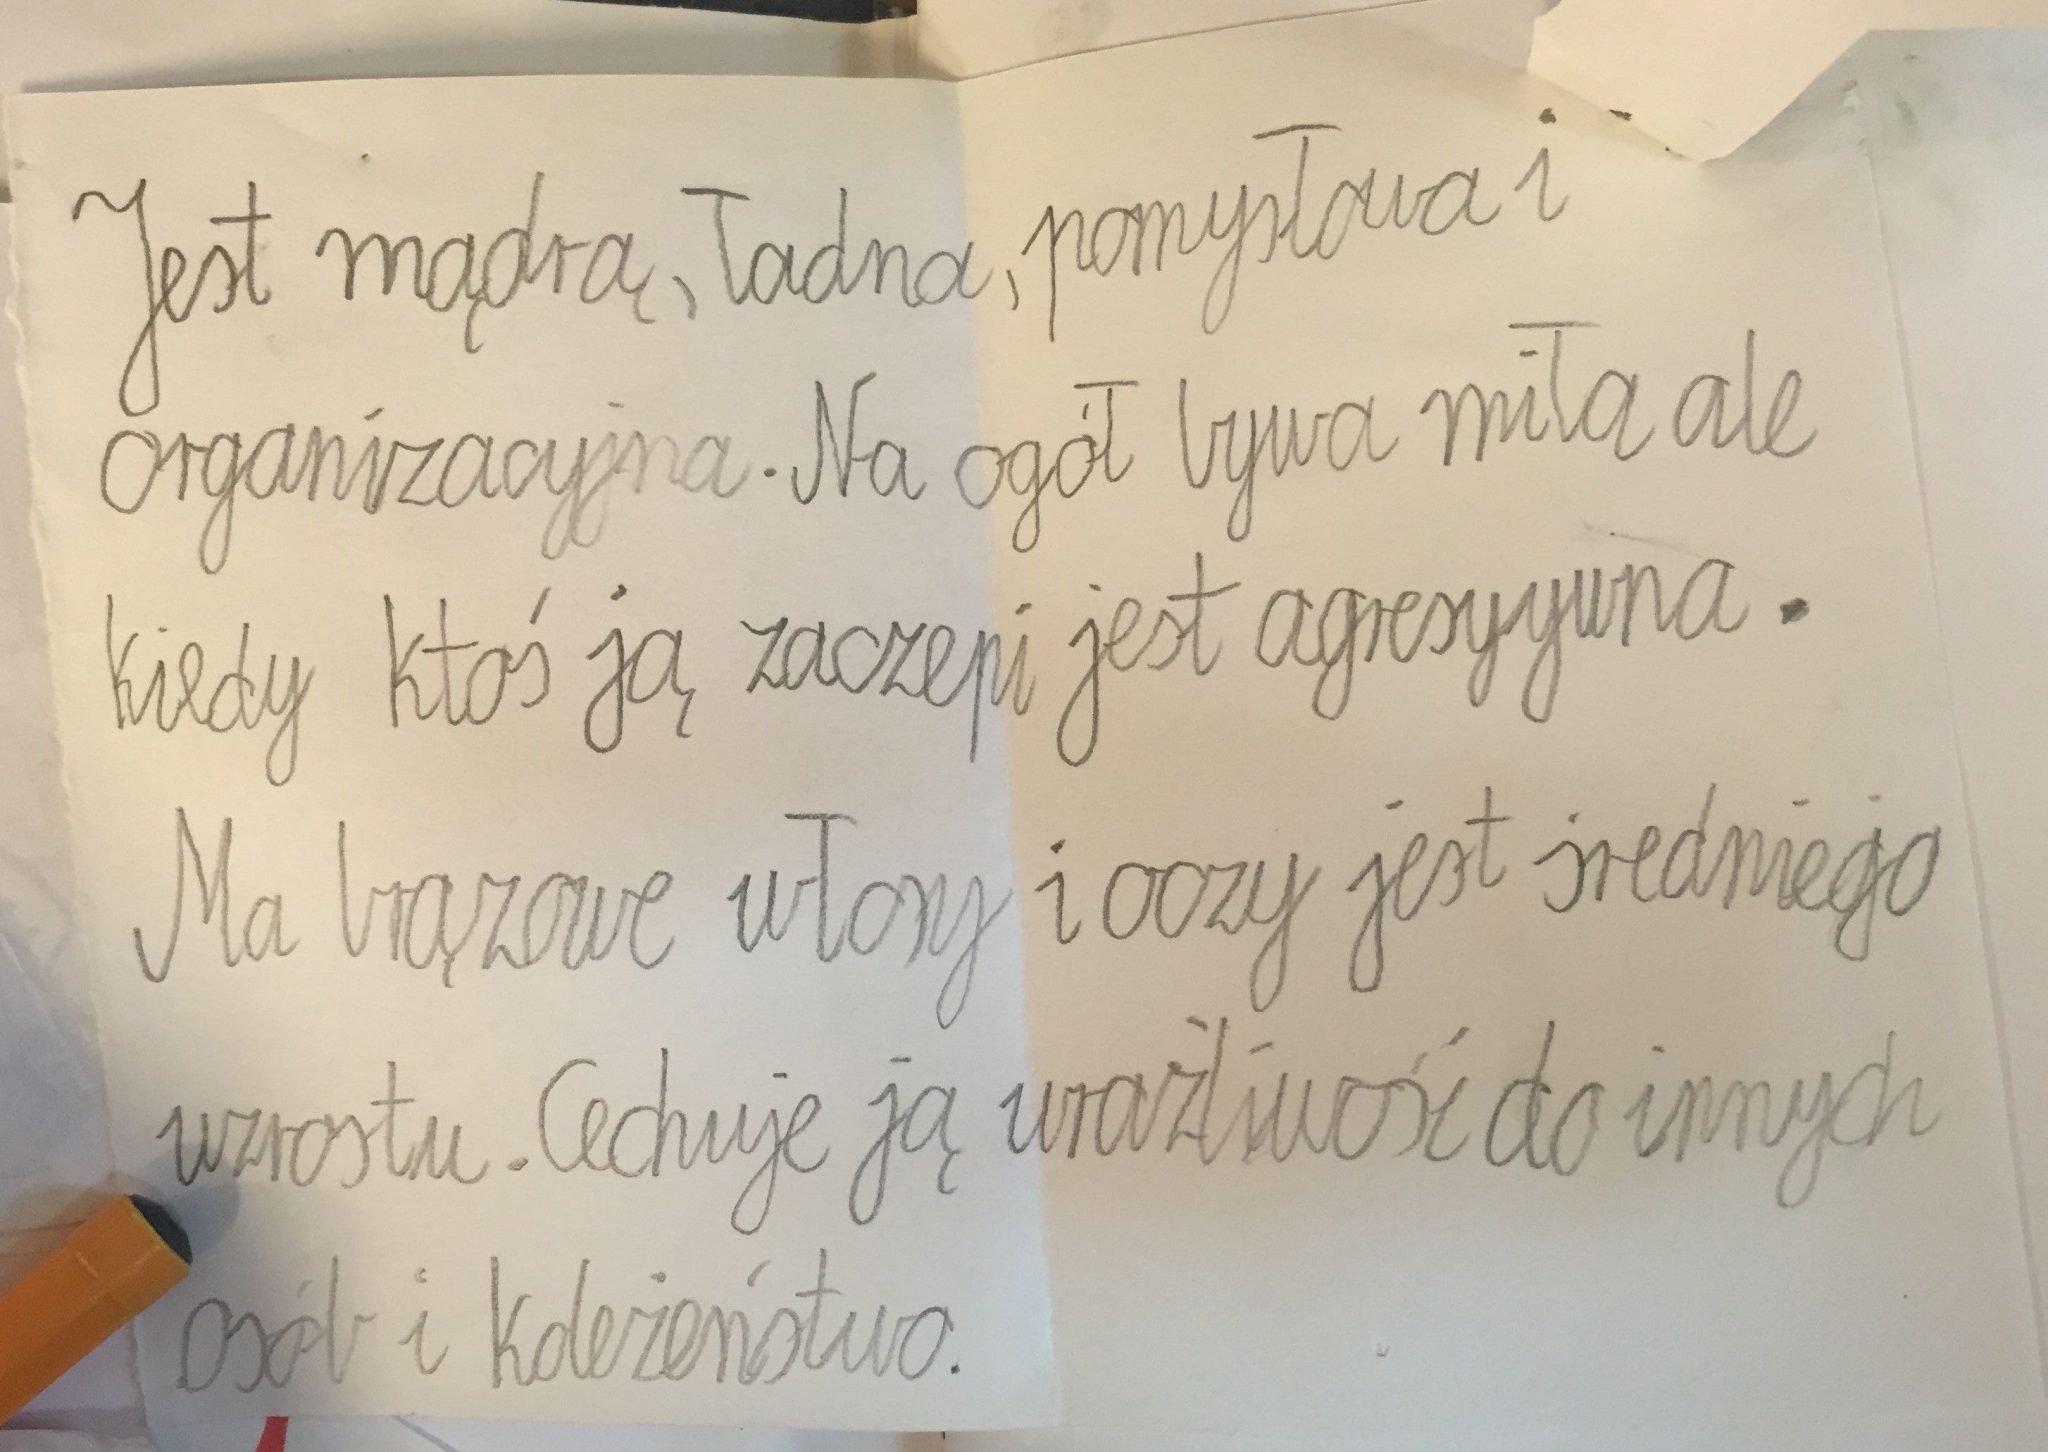 Jest mądrą, ładna, pomysłowa i
organizacyjna. Na ogół bywa miłą ale
kiedy ktoś ją zaczepi jest agresyywna.
Ma brązowe włosy i oczy jest średniego
wzrostu. Cechuje ją wrażliwość do innych
osób i koleżeństwo.